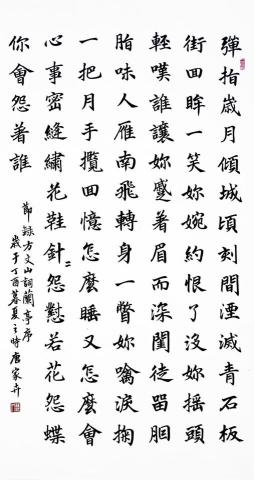 彈指歲月傾城頃刻間湮滅青石板
街回眸一笑妳婉約恨了沒妳搖頭
輕嘆誰讓妳蹙着眉而深閨徒留胭
脂味人雁南飛轉身一瞥妳噙淚掬
一把月手攬回憶怎麼睡又怎麼會
心事密縫繡花鞋針〻怨懟若花怨蝶
你會怨着誰
節錄方文山詞蘭亭序
歲于丁酉暮夏之時唐家卉